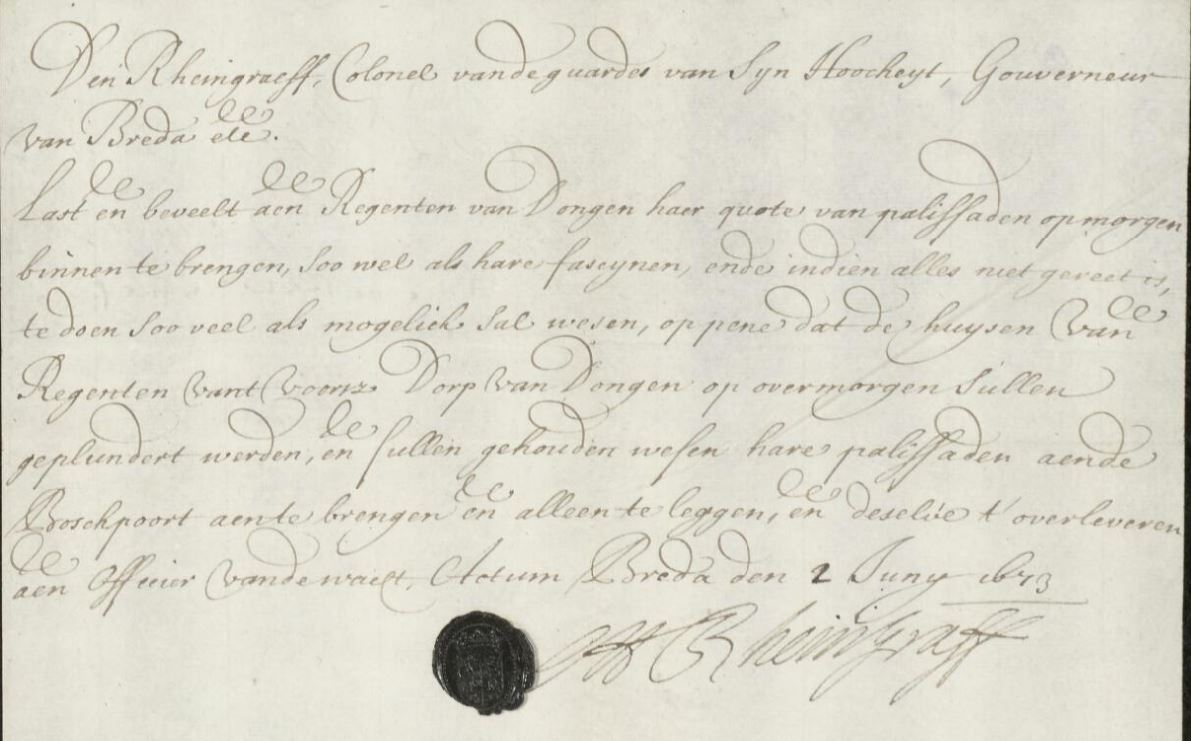 Den Rheingraeff, Colonel vande guardes van Syn Hoocheyt, Gouverneur
van Breda etc.
Last en beveelt aen Regenten van Dongen haer quote van palissaden op morgen
binnen te brengen, soo wel als hare fascynen, ende indien alles niet gereet is,
te doen soo veel als mogelick sal wesen, op pene dat de huysen van
Regenten vant voorsz Dorp van Dongen op overmorgen sullen
geplundert werden, en sullen gehouden wesen hare palissaden aende
Boschpoort aen te brengen en alleen te leggen, en deselve t' overleveren
aen Officier vande wacht, Actum Breda den 2 Juny 1673
Rheingraff